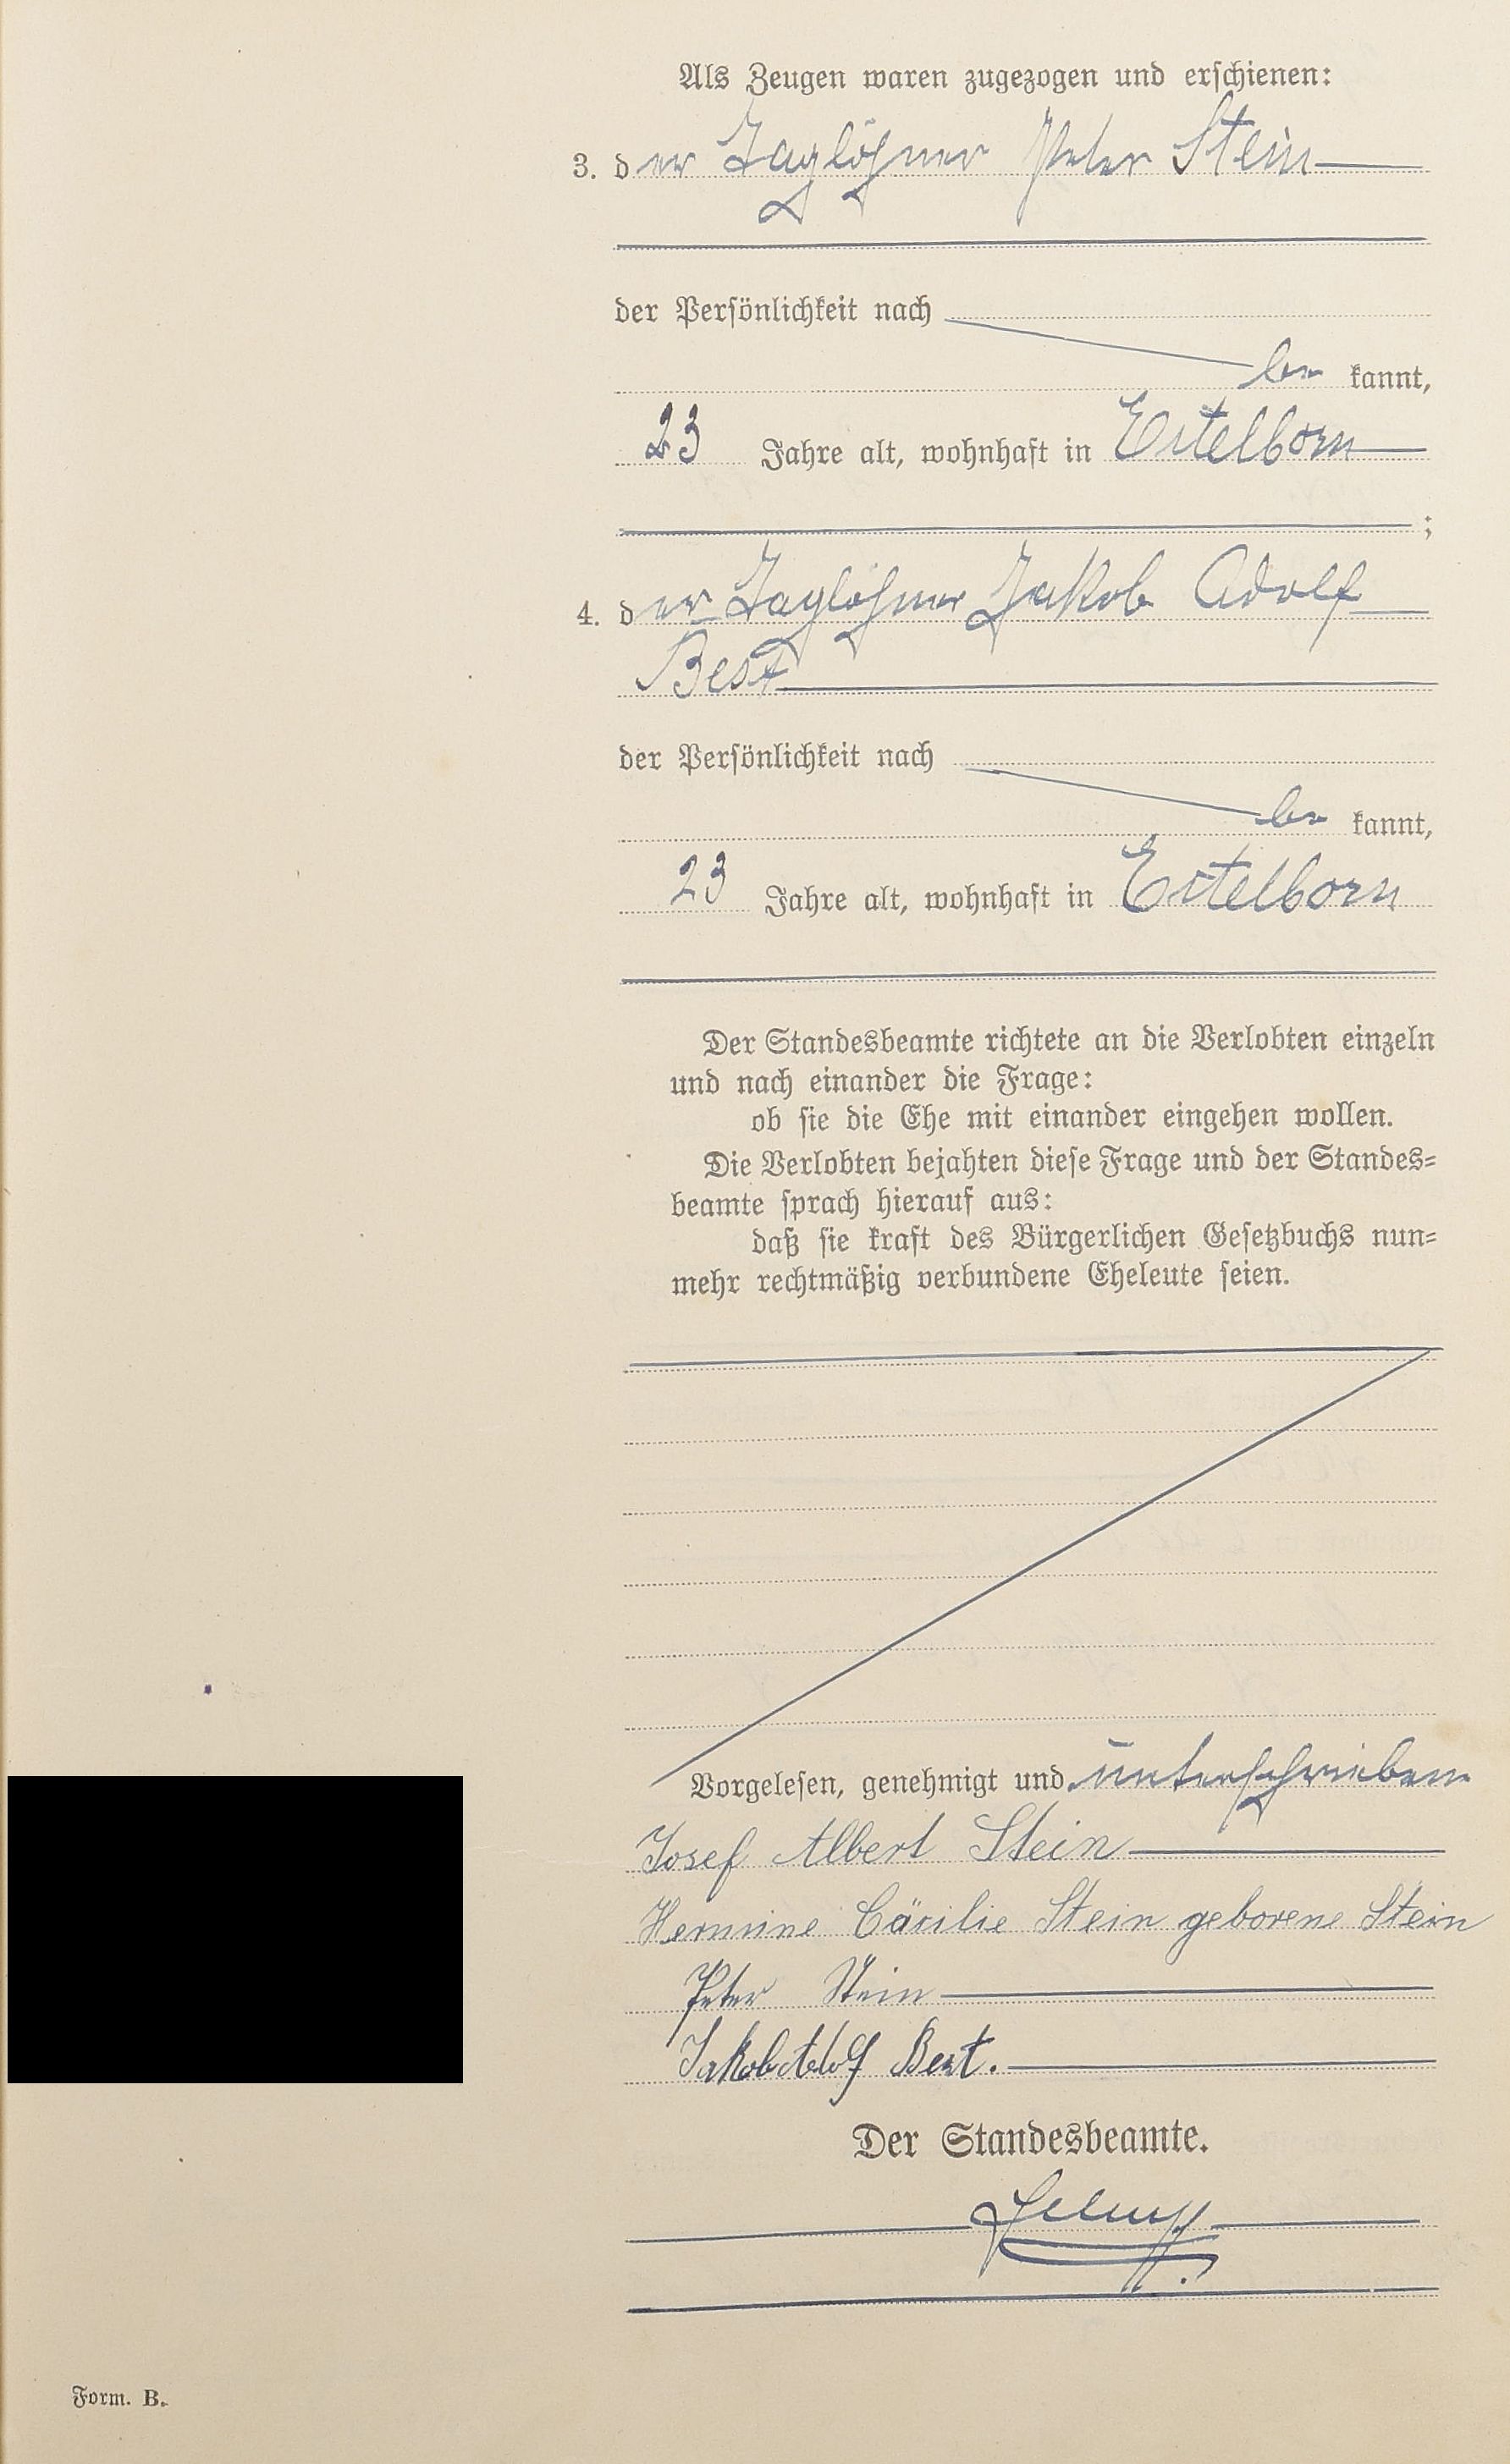 Als Zeugen waren zugezogen und erschienen:
3. der Taglöhner Peter Stein
der Persönlichkeit nach
be kannt,
23 Jahre alt, wohnhaft in Eitelborn
;
4. der Taglöhner Jakob Adolf
Best
der Persönlichkeit nach
be kannt,
23 Jahre alt, wohnhaft in Eitelborn
Der Standesbeamte richtete an die Verlobten einzeln
und nach einander die Frage:
ob sie die Ehe mit einander eingehen wollen.
Die Verlobten bejahten diese Frage und der Standes=
beamte sprach hierauf aus:
daß sie kraft des Bürgerlichen Gesetzbuchs nun=
mehr rechtmäßig verbundene Eheleute seien.
Vorgelesen, genehmigt und unterschrieben
Josef Albert Stein
Hermine Cäcilie Stein geborene Stein
Peter Stein
Jakob Adolf Best.
Der Standesbeamte.
Form. B.